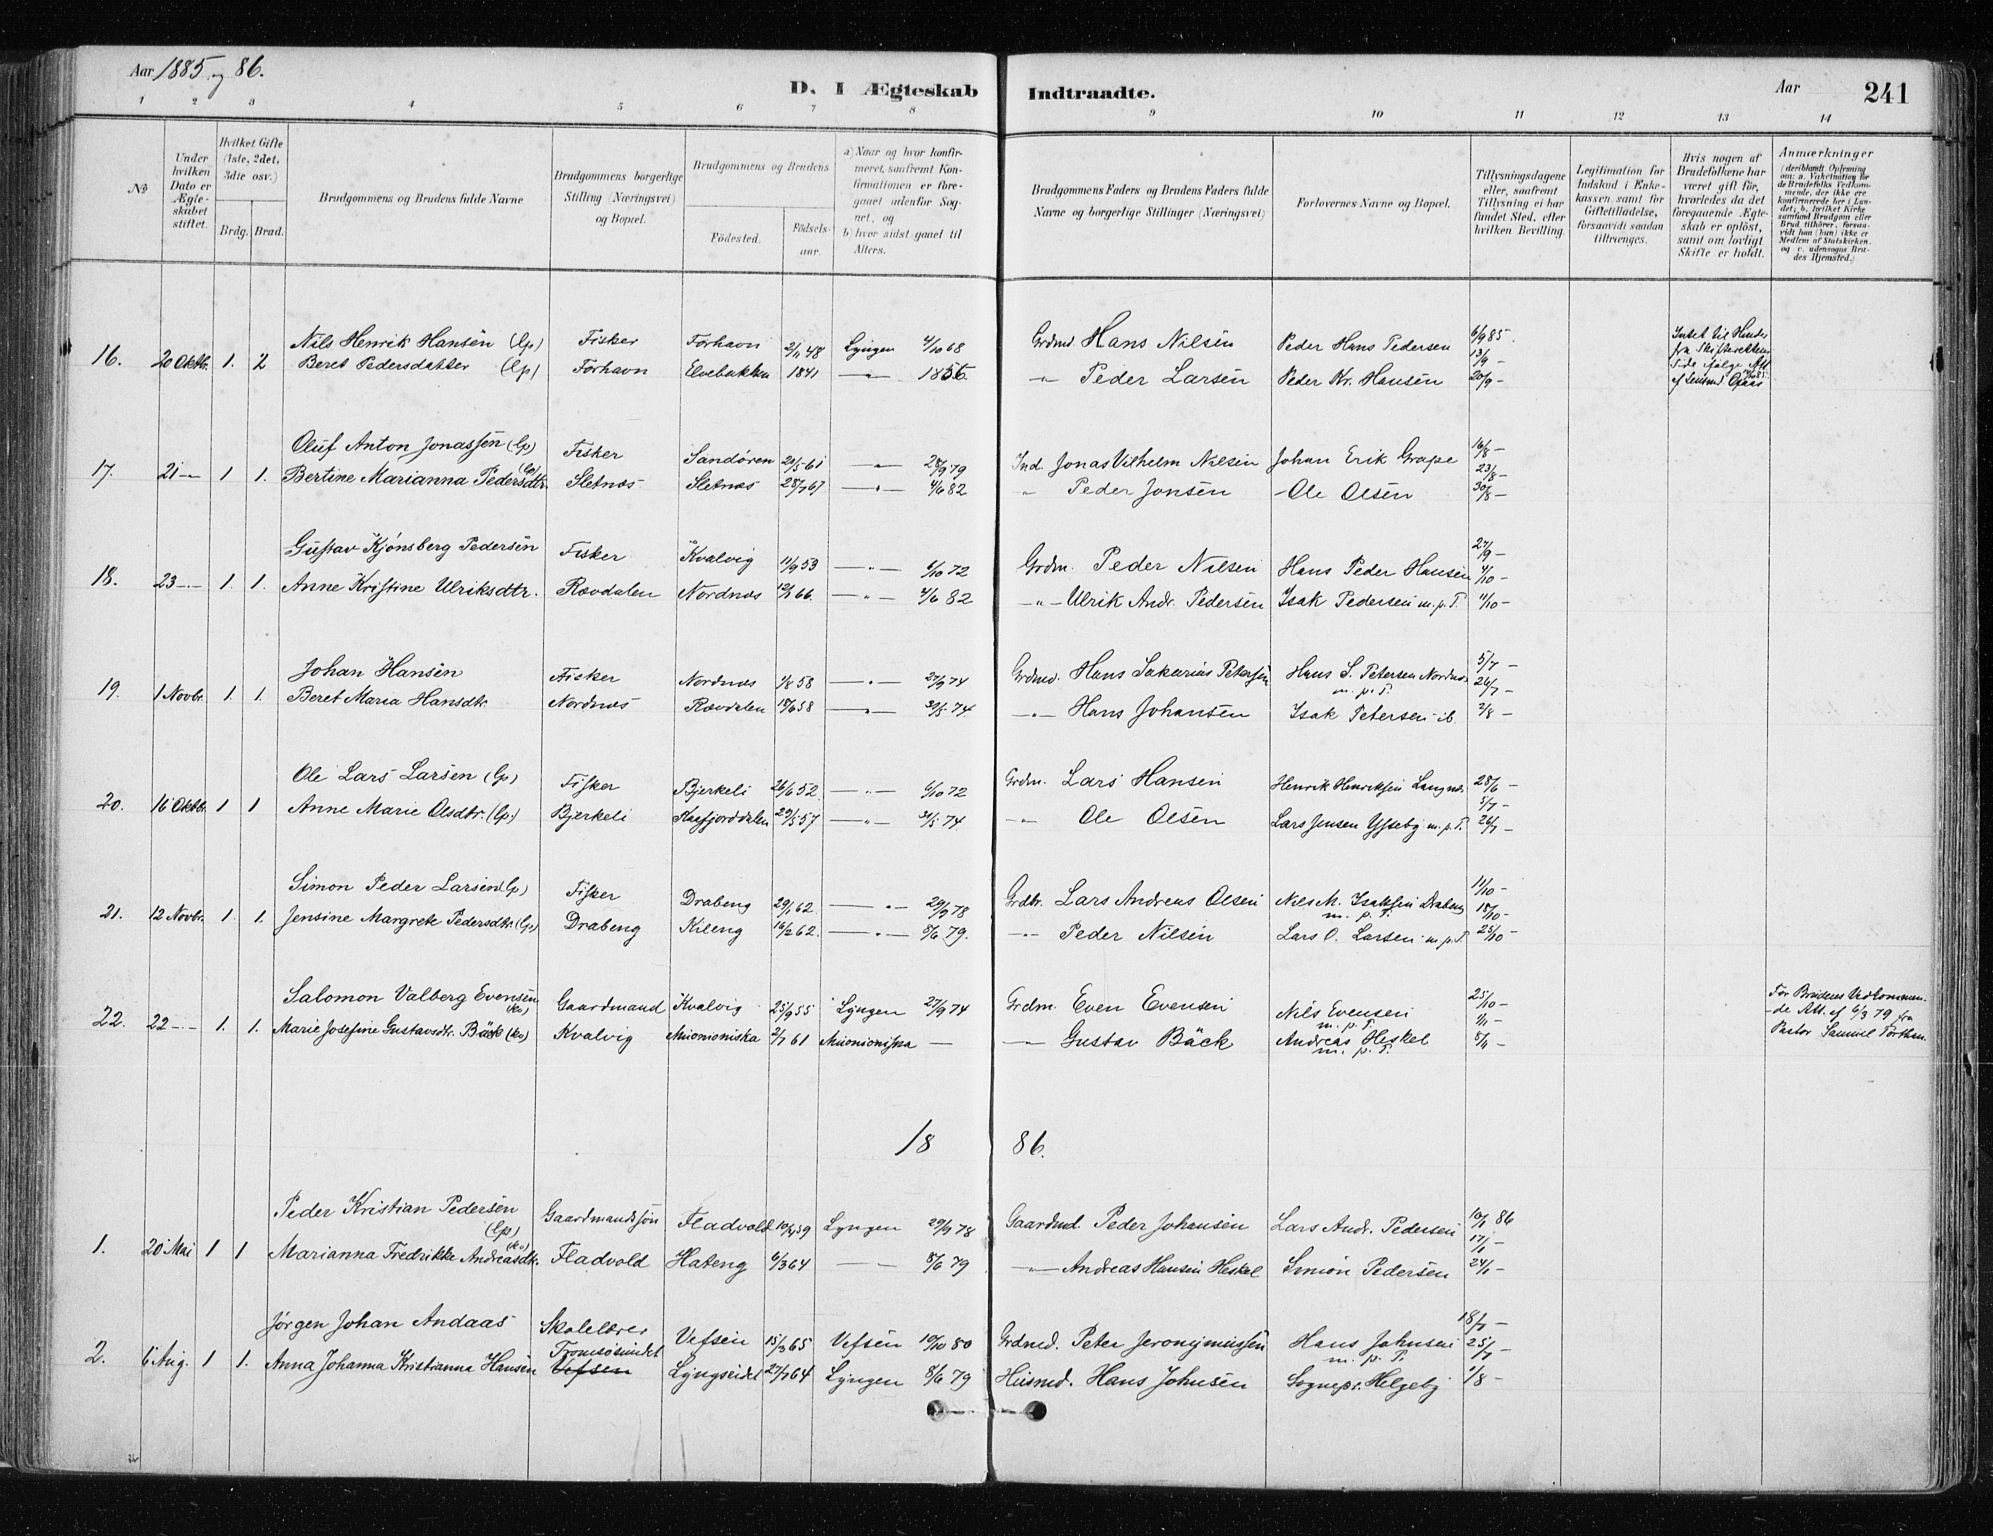 Aar 1885 og 86.
D. I Ægteskab Indtraadte.
Aar 241
1 2 3 4 5 6 7 8 9 10 11 12 13 14
No
Under hvilken Dato er Ægteskabet stiftet.
Hvilket Gifte (1ste, 2det, 3die osv.)
Brdg. Brud.
Brudgommens og Brudens fulde Navne
Brudgommens borgerlige Stilling (Næringsvei) og Bopæl.
Brudgommens og Brudens
Födested. Födsels-aar.
a) Naar og hvor konfirmeret, saafremt Konfirmationen er foregaaet udenfor Sognet, og
b) hvor sidst gaaet til Alters.
Brudgommens Faders og Brudens Faders fulde Navne og borgerlige Stillinger (Næringsvei)
Forlovernes Navne og Bopæl.
Tillysningsdagene eller, saafremt Tillysning ei har fundet Sted, efter hvilken Bevilling.
Legitimation for Indskud i Enkekassen samt for Giftetilladelse, forsaavidt saadan tiltrænges.
Hvis nogen af Brudefolkene har været gift för, hvorledes da det foregaaende Ægteskab er oplöst, samt om lovligt Skifte er holdt.
Anmærkninger (deriblandt Oplysning om: a. Vakcination for de Brudefolks Vedkommende, der ikke ere konfirmerede her i Landet; b. hvilket Kirkesamfund Brudgom eller Brud tilhörer, forsaavidt han (hun) ikke er Medlem af Statskirken, og c. udensogns Brudes Hjemsted.)
Nils Henrik Hansen (Lp) Fisker Forhavn 2/11 48 Lyngen 4/10 68 Grdmd. Hans Nilsen Peder Hans Pedersen 6/9 85.
16. 20 Oktbr. 1. 2 Beret Pedersdatter (Lp) Forhavn Elvebakken 1841 — " — 1856. " Peder Larsen Peder Kr. Hansen 13/9 - 20/9 -
Oluf Anton Jonassen (Lp) Fisker Sandøren 21/5 61 — " — 28/9 79 Ind. Jonas Vilhelm Nilsen Johan Erik Grape 16/8 -
17. 21 — 1 1. Bertine Marianna Pedersdtr. (Lp) Sletnæs Sletnæs 28/7 67 — " — 4/6 82 " Peder Jonsen Ole Olsen 23/8 - 30/8 -
Gustav Kjønsberg Pedersen Fisker Kvalvig 11/9 53 — " — 6/10 72 Grdm. Peder Nilsen Hans Peder Hansen 27/9 -
18. 23 — 1. 1. Anne Kristine Ulriksdtr. Rævdalen Nordnæs 12/1 66. — " — 4/6 82 — " — Ulrik Andr. Pedersen Isak Pedersen m. p. P. 4/10 - 11/10 -
Johan Hansen Fisker Nordnæs 1/8 58 — " — 27/9 74 Grdmd. Hans Sakarias Petersen Hans S. Petersen Nordnæs m. p. P. 5/7 -
19. 1 Novbr. 1. 1. Beret Maria Hansdtr. Nordnæs Rævdalen 18/6 58 — " — 31/5 74 — " — Hans Johansen Isak Petersen ib. 26/7 - 2/8 -
Ole Lars Larsen (Lp) Fisker Bjerkeli 26/6 52. — " — 6/10 72 Grdm. Lars Hansen Henrik Henriksen Langnæs 28/6 -
20. 16 Oktbr. 1 1 Anne Marie Olsdtr. (Lp.) Bjerkeli Kaafjorddalen 29/5 57 — " — 31/5 74 — " — Ole Olsen Lars Jensen Ytteby m. p. P. 5/7 - 26/7 -
Simon Peder Larsen (Lp) Fisker Drabeng 29/1 62 — " — 29/9 78 Grdbr. Lars Andreas Olsen Nils M. Isaksen Drabeng m. p. P. 11/10 -
21. 12 Novbr. 1 1. Jensine Margrete Pedersdtr. (Lp) Drabeng Kileng 16/2 62. — " — 8/6 79. — " — Peder Nilsen Lars O. Larsen m. p. P. 18/10 - 25/10 -
Salomon Valberg Evensen (Kv) Gaardmand Kvalvig 25/9 55 Lyngen 27/9 74 Grdm. Even Evensen Nils Evensen m. p. P. 25/10 -
22. 22 — 1. 1. Marie Josefine Gustavsdtr. Bäck (Kv) Kvalvig Muonioniska 2/7 61 Muonioniska — — Gustav Bäck Andreas Heskel m. p. P. 1/11 - 8/11 -
For Brudens Vedkommen-
de Att. af 6/3 79 fra
Pastor Samuel
1886.
Peder Kristian Pedersen (Lp) Gaardmandssøn Fladvold 10/4 59 Lyngen 29/9 78 Gaardmd. Peder Johansen Lars Andr. Pedersen 10/1 86
1. 20 Mai 1 1 Marianna Fredrikke Andreasdtr. (Kv) Fladvold Hateng 6/3 64 — 8/6 79 — " — Andreas Hansen Heskel Simon Pedersen 17/1 - 24/1 -
Jørgen Johan Andaas Skolelærer Tromsøsundet Vefsen 15/3 65 Vefsen 10/10 80 Grdmd. Peter Jeronymussen Hans Johnsen m. p. P. 18/7 -
2. 6 Aug. 1 1. Anna Johanna Kristianna Hansen Vefsen Lyngseidet 27/7 64 Lyngen 8/6 79 Husmd. Hans Johnsen Sognepr. Helgeby 25/7 - 1/8 -